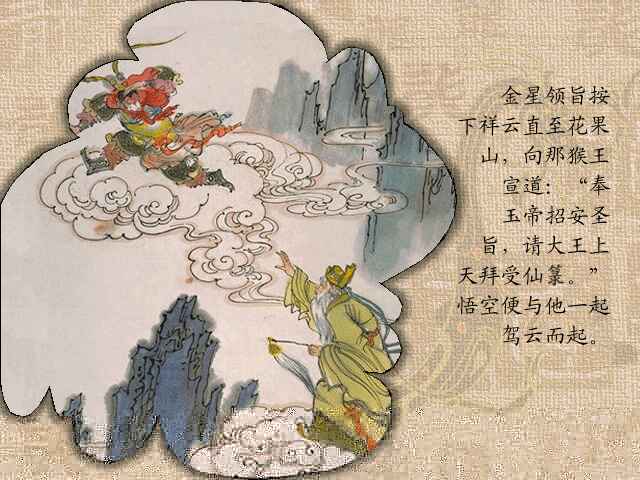 金星领旨按
下祥云直至花果
山，向那猴王
宣道：“奉
玉帝招安圣
旨，请大王上
天拜受仙箓。”
悟空便与他一起
驾云而起。